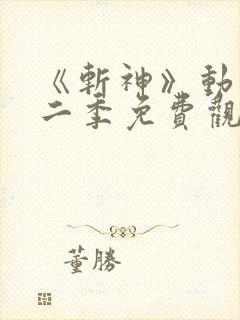 《斬神》動
二季免費觀
董勝